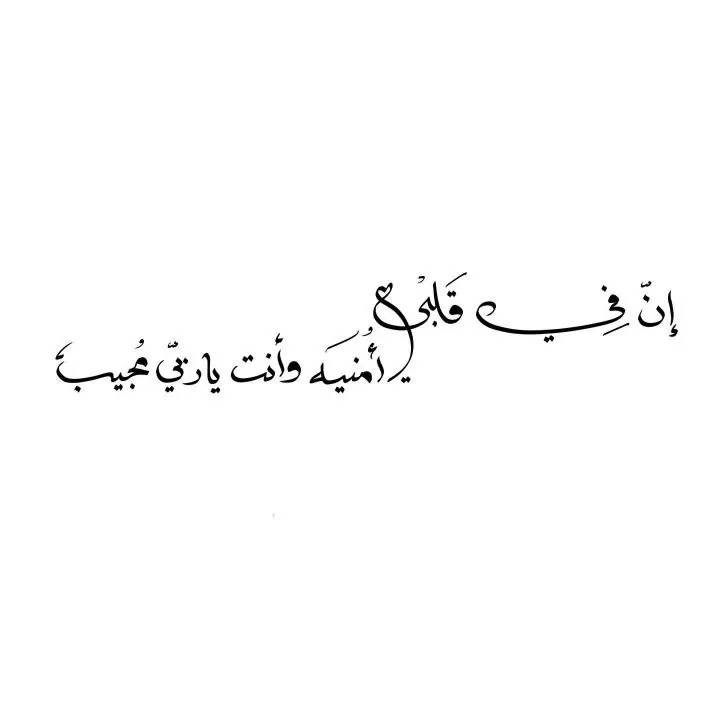 إنّ في قَلبيْ
أُمنيَه وأنت ياربّي مُجيب